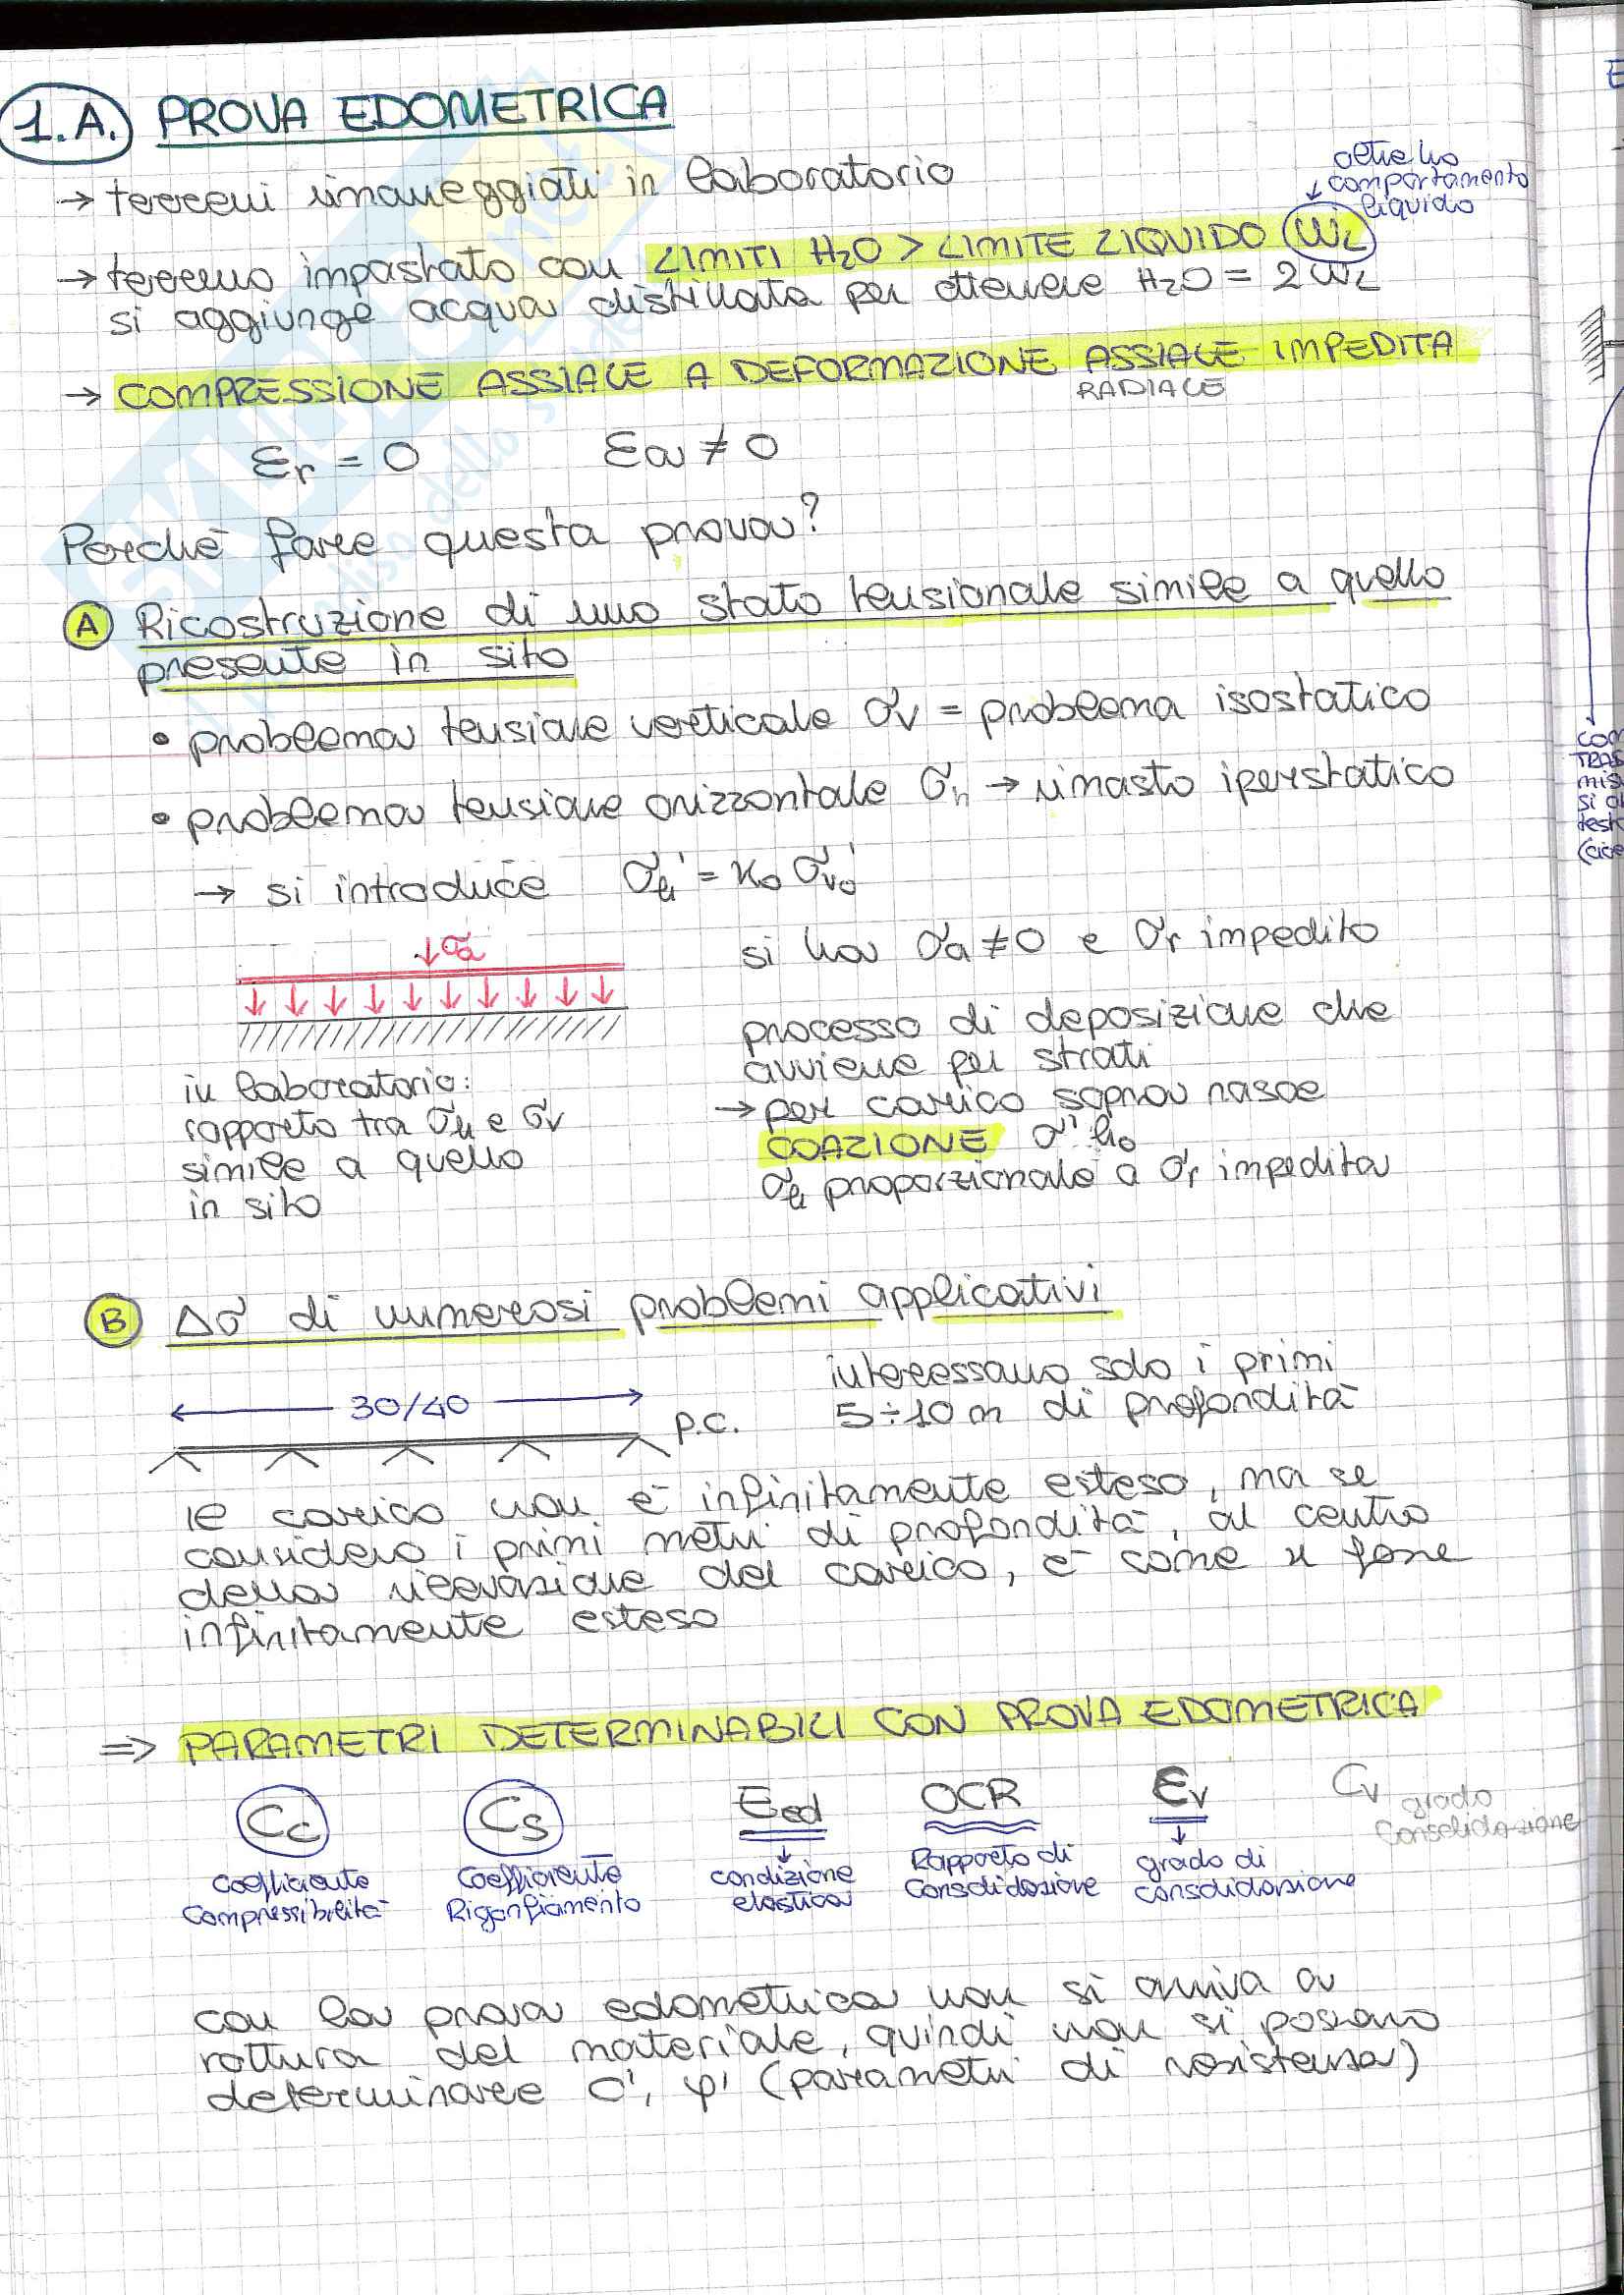 1.A. PROVA EDOMETRICA
→ terreni rimaneggiati in laboratorio
oltre ho
comportamento
liquido
→ terreno impastato con LIMITI H₂O > LIMITE LIQUIDO WL
si aggiunge acqua distillata per ottenere H₂O = 2WL
→ COMPRESSIONE ASSIALE A DEFORMAZIONE ASSIALE IMPEDITA
RADIALE
εr = 0 εa ≠ 0
Perchè fare questa prova?
A Ricostruzione di uno stato tensionale simile a quello
presente in sito
• problema tensione verticale σv = problema isostatico
• problema tensione orizzontale σh → rimasto iperstatico
→ si introduce σh' = K₀ σv₀'
↓σa
si ha σa ≠ 0 e σr impedito
processo di deposizione che
avviene per strati
→ per carico sopra nasce
COAZIONE σ'h₀
σh proporzionale a σr impedita
in laboratorio:
rapporto tra σh e σv
simile a quello
in sito
B Δσ di numerosi problemi applicativi
30/40
p.c.
interessano solo i primi
5÷10 m di profondità
le carico non è infinitamente esteso, ma se
considero i primi metri di profondità, al centro
della rilevazione del carico, è come se fosse
infinitamente esteso
⇒ PARAMETRI DETERMINABILI CON PROVA EDOMETRICA
Cc Cs Eed OCR Ev Cv
grado
Consolidazione
Coefficiente
Compressibilità
Coefficiente
Rigonfiamento
condizione
elastica
Rapporto di
Consolidazione
grado di
consolidazione
con la prova edometrica non si arriva a
rottura del materiale, quindi non si possono
determinare C', φ' (parametri di resistenza)